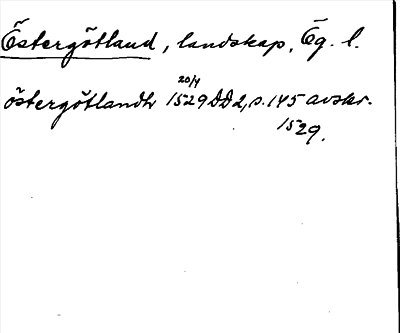 Östergötland, landskap, Ög. l.
20/4
östergötlandh 1529 DD2, s. 145 avskr.
1529.